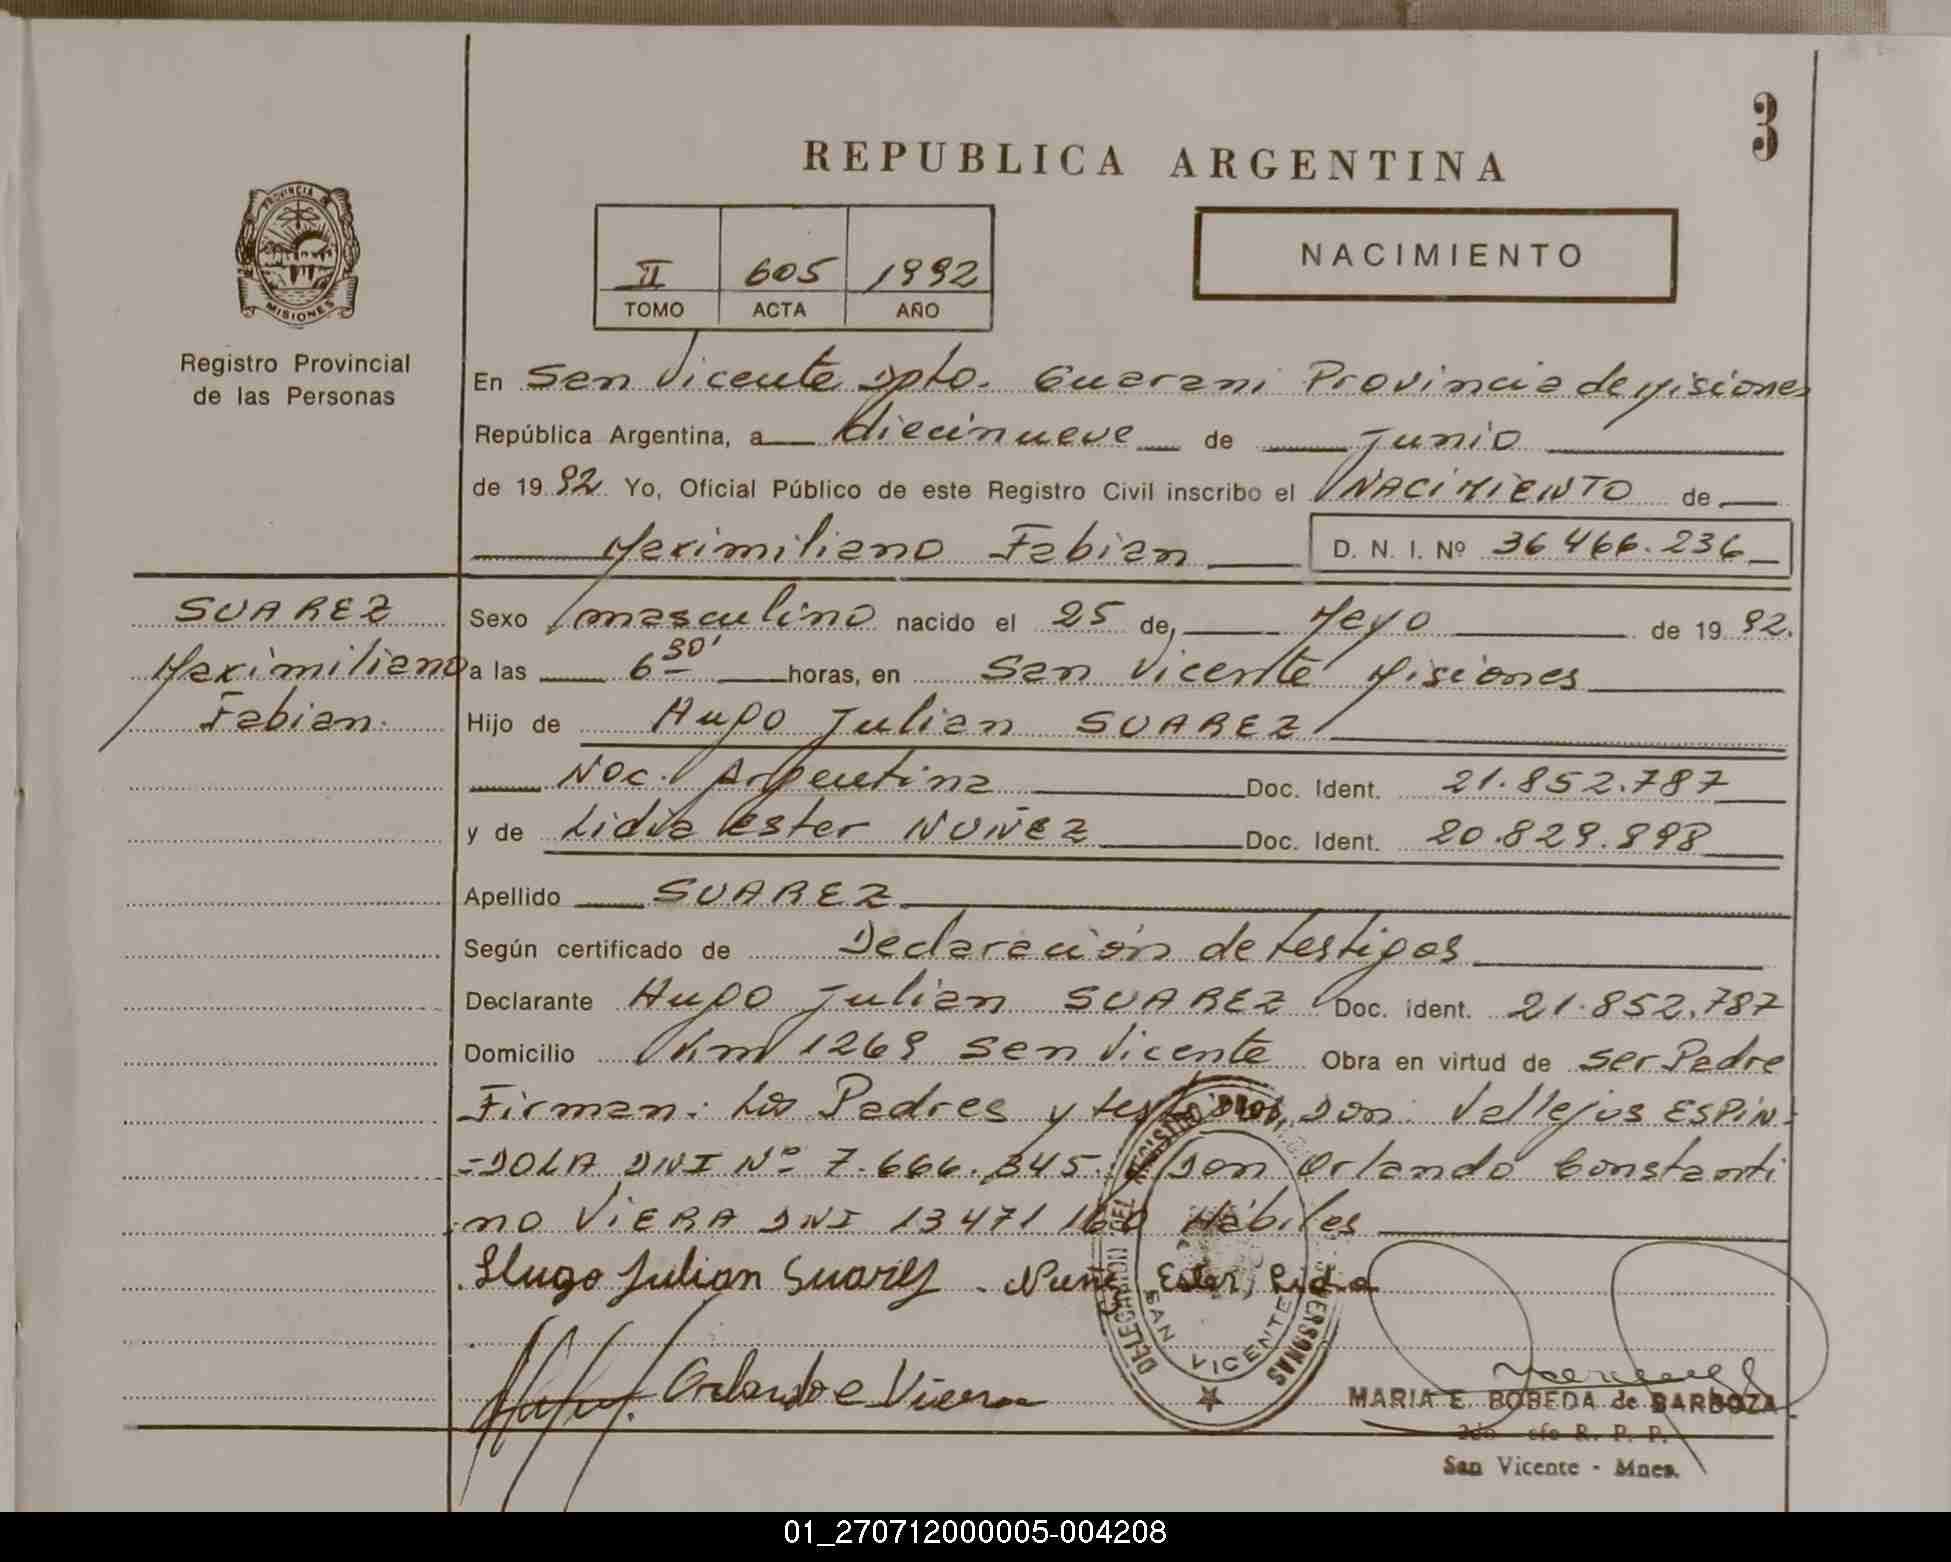 3
REPUBLICA ARGENTINA
PROVINCIA
MISIONES
Registro Provincial
de las Personas
II 605 1992
TOMO ACTA AÑO
NACIMIENTO
En San Vicente Dpto. Guarani Provincia de Misiones
República Argentina, a diecinueve de Junio
de 1992 Yo, Oficial Público de este Registro Civil inscribo el NACIMIENTO de
Maximiliano Fabian D. N. I. Nº 36466.236
SUAREZ
Maximiliano
Fabian.
Sexo masculino nacido el 25 de Mayo de 1992.
a las 6 30' horas, en San Vicente Misiones
Hijo de Hugo Julian SUAREZ
Nac. Argentina Doc. Ident. 21.852.787
y de Lidia Ester NUÑEZ Doc. Ident. 20.829.898
Apellido SUAREZ
Según certificado de Declaración de testigos
Declarante Hugo Julian SUAREZ Doc. ident. 21.852.787
Domicilio Km 1269 San Vicente Obra en virtud de ser Padre
Firman: Los Padres y testigos, Don: Vallejos ESPIN-
-DOLA DNI Nº 7.666.345. Don Orlando Constanti
no VIERA DNI 13471160 Hábiles
Hugo Julian Suarez - Nuñez Ester, Lidia
Orlando C Viera
DELEGACION DEL REGISTRO PROV. PERSONAS
SAN VICENTE
MARIA E. BOBEDA de BARBOZA
R. P. P.
San Vicente - Mnes.
01_270712000005-004208